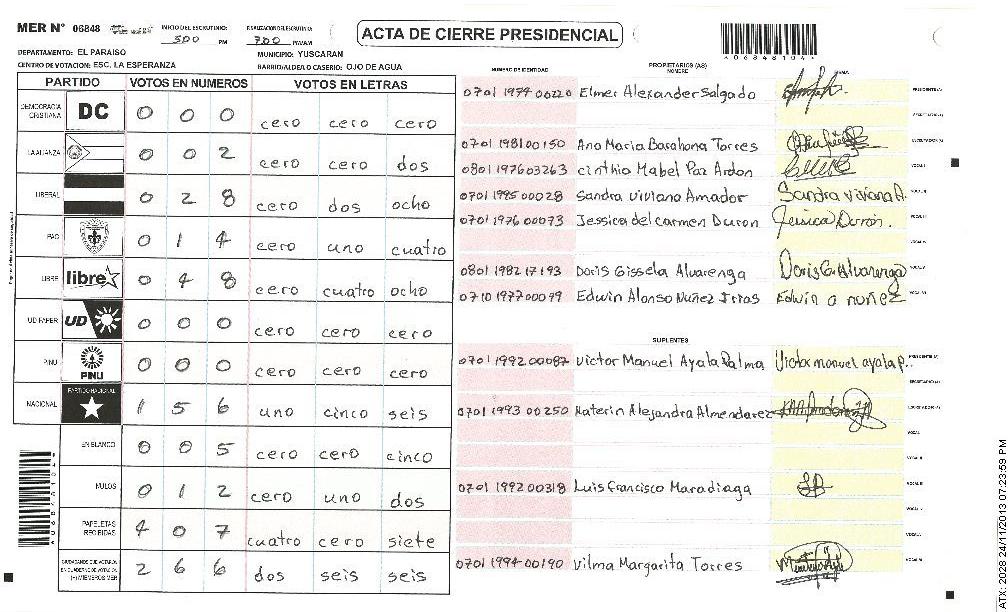 MER Nº 06848 INICIO DEL ESCRUTINIO: 500 PM FINALIZACION DEL ESCRUTINIO: 700 PM/AM ACTA DE CIERRE PRESIDENCIAL
DEPARTAMENTO: EL PARAISO MUNICIPIO: YUSCARAN
CENTRO DE VOTACION: ESC. LA ESPERANZA BARRIO/ALDEA O CASERIO: OJO DE AGUA
PARTIDO VOTOS EN NUMEROS VOTOS EN LETRAS
DEMOCRACIA CRISTIANA DC 0 0 0 cero cero cero
LA ALIANZA 0 0 2 cero cero dos
LIBERAL 0 2 8 cero dos ocho
PAC 0 1 4 cero uno cuatro
LIBRE libre 0 4 8 cero cuatro ocho
UD FAPER UD 0 0 0 cero cero cero
PINU PINU 0 0 0 cero cero cero
NACIONAL PARTIDO NACIONAL 1 5 6 uno cinco seis
EN BLANCO 0 0 5 cero cero cinco
NULOS 0 1 2 cero uno dos
PAPELETAS RECIBIDAS 4 0 7 cuatro cero siete
CIUDADANOS QUE VOTARON EN CUADERNO DE VOTACION (+) MIEMBROS MER 2 6 6 dos seis seis
NUMERO DE IDENTIDAD PROPIETARIOS (AS) NOMBRE FIRMA
0701 1979 00220 Elmer Alexander Salgado PRESIDENTE(A)
SECRETARIO(A)
0701 1981 00150 Ana Maria Barahona Torres ESCRUTADOR(A)
0801 1976 03263 cinthia Mabel Paz Ardon VOCAL I
0701 1995 00028 Sandra Viviana Amador Sandra viviana A. VOCAL II
0701 1976 00073 Jessica del carmen Duron Jessica Duron. VOCAL III
VOCAL IV
0801 1982 17193 Doris Gissela Alvarenga Doris G. Alvarenga VOCAL V
0710 1977 00099 Edwin Alonso Nuñez Irias Edwin a nuñez VOCAL VI
SUPLENTES
0701 1992 00087 Victor Manuel Ayala Palma Victor manuel ayala P. PRESIDENTE(A)
SECRETARIO(A)
0701 1993 00250 Katerin Alejandra Almendarez ESCRUTADOR(A)
VOCAL I
VOCAL II
0701 1992 00318 Luis Francisco Maradiaga VOCAL III
VOCAL IV
VOCAL V
0701 1994 00190 Vilma Margarita Torres VOCAL VI
ATX: 2028 24/11/2013 07:23:59 PM